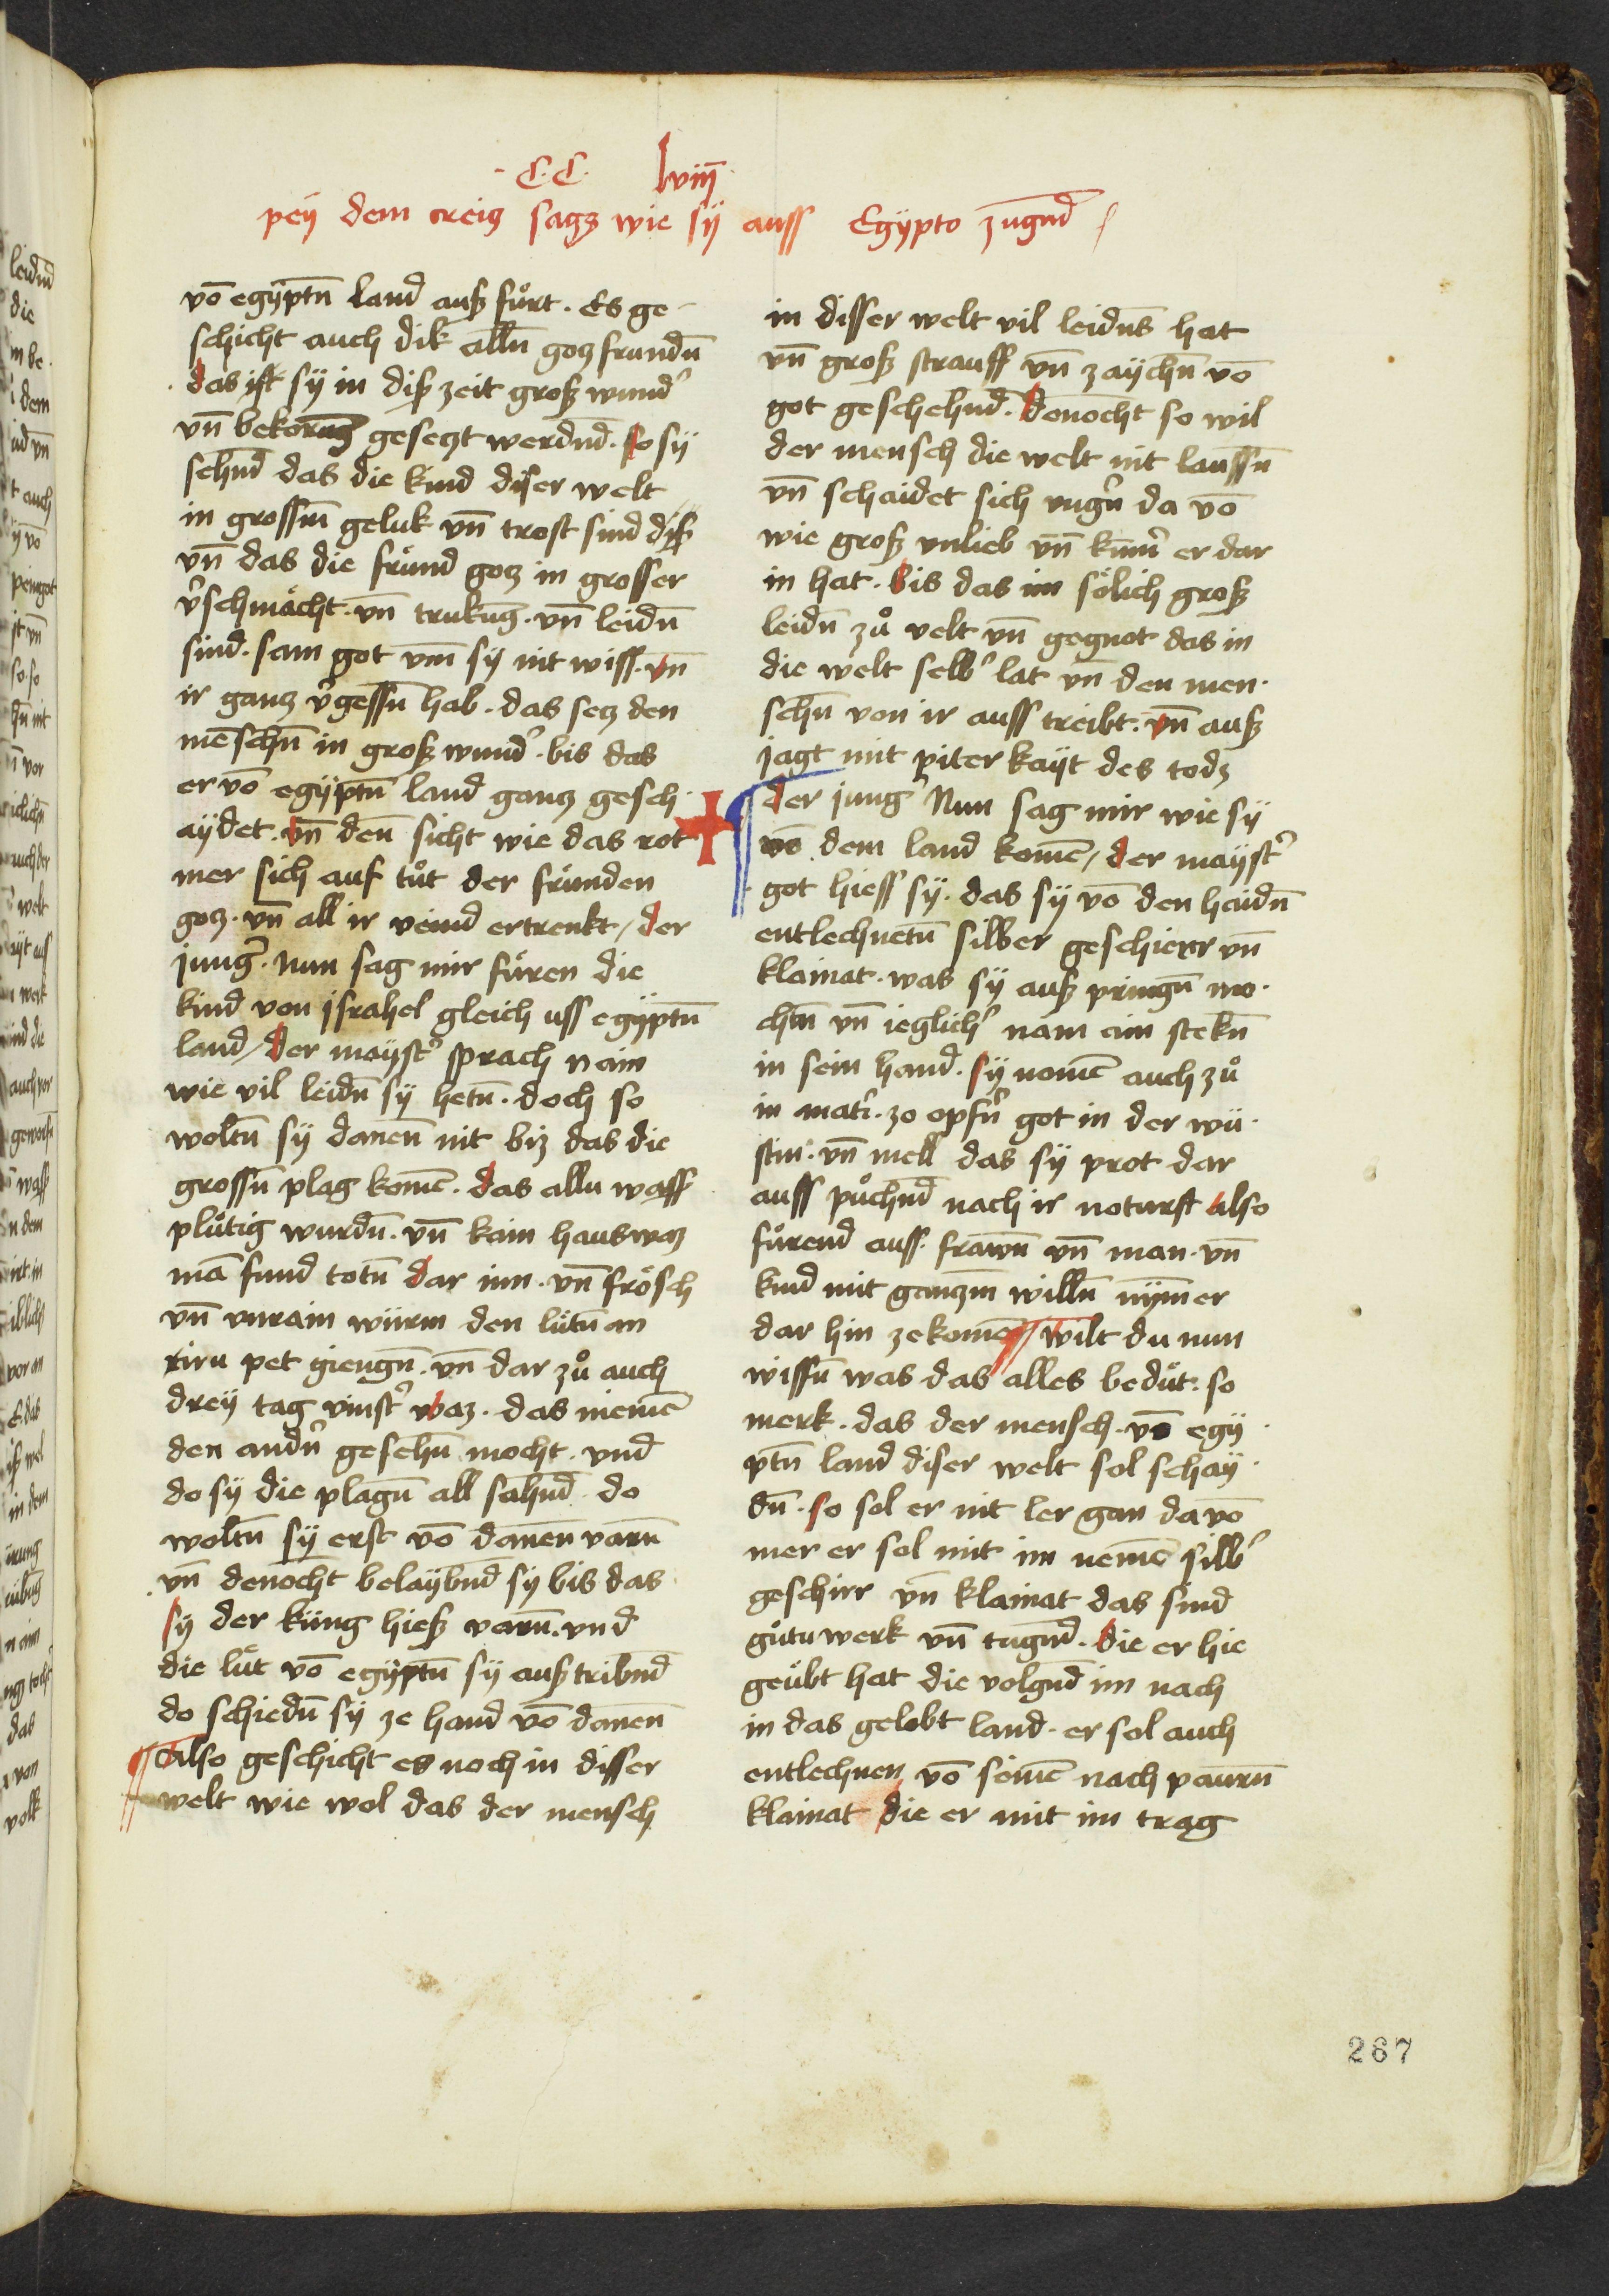 C.C. lviiij
peÿ dem creiꜩ sagꜩ wie sÿ auss Egÿpto zugnd
võ egÿptñ land auß fuͤrt . Es ge
schicht auch dik alln̄ goꜩ frundn̄
das ist sÿ in diß zeit groß wund᾽
vn̄ bekorūg geseꜩt werdn̄d . so sÿ
sehn̄d das die kind diser welt
in grossm̄ geluk vn̄ trost sind diß
vn̄ das die fruͤnd goꜩ in grosser
v᾽schmaͤcht . vn̄ trukūg . vn̄ leidn̄
sind . sam got vm̄ sÿ nit wiss . vn̄
ir ganꜩ v᾽gessn̄ hab . das seꜩ den
mēschn̄ in groß wund᾽ . bis das
er võ egÿptn̄ land ganꜩ gesch
aÿdet . vn̄ den̄ sicht wie das rot
mer sich auf tuͦt der fruͤnden
goꜩ . vn̄ all ir veind ertrenkt / der
jung᾽ . Nun sag mir fuͤren die
kind von jsrahel gleich uss egÿptn̄
land / der maÿst᾽ sprach nain
wie vil leidn̄ sÿ hetn̄ . doch so
woltn̄ sÿ danen̄ nit biz das die
grossn̄ plag komē . das allu wass
pluͦtig wurdn̄ . vn̄ kain haus waꜩ
mā fund totn̄ dar inn . vn̄ froͤsch
vn̄ vnrain würm den luͤtn̄ an
iru pet giengn̄ . vn̄ dar zuͦ auch
dreÿ tag vinst᾽ waz . das niemē
den andn᾽ gesehn̄ mocht . vnd
do sÿ die plagn̄ all sahn̄d . do
woltn̄ sÿ erst võ danen̄ varn̄
vn̄ denocht belaÿbn̄d sÿ bis das
sÿ der küng hieß varn̄ . vnd
die luͤt võ egÿptn̄ sÿ auß tribn̄d
do schiedn̄ sÿ ze hand võ danen̄
¶ Also geschicht es noch in disser
welt wie wol das der mensch
in disser welt vil leidn̄s hat
vn̄ groß strauff vn̄ zaÿchn̄ võ
got geschehn̄d . denocht so wil
der mensch die welt nit laussn̄
vn̄ schaidet sich vngn᾽ da võ
wie groß vnlieb vn̄ kūm᾽ er dar
in hat . bis das im soͤlich groß
leidn̄ zuͦ velt vn̄ gegnot das in
die welt selb᾽ lat vn̄ den men
schn̄ von ir auss treibt . vn̄ auß
jagt mit piterkaÿt des todꜩ
¶ der jung᾽ Nun sag mir wie sÿ
võ dem land komē / der maÿst᾽
got hiess sÿ . das sÿ võ den haidn̄
entlechnetn̄ silber geschierr vn̄
klainat . was sÿ auß pringn̄ mo
chtn̄ vn̄ ieglich᾽ nam aim stekn̄
in sein hand . sÿ nomē auch zuͦ
in mat᾽i . zo opfn᾽ got in der wü
stin . vn̄ mell das sÿ prot dar
auss puͦchn̄d nach ir noturft also
fuͤrend auss . frawn̄ vn̄ man . vn̄
kind mit ganꜩm̄ willn̄ nÿm̄er
dar hin ze komē ¶ wilt du nun
wissn̄ was das alles beduͤt . so
merk . das der mensch . võ egÿ
ptn̄ land diser welt sol schaÿ
dn̄ . so sol er nit ler gan da võ
mer er sol mit im nemē silb᾽
geschirr vn̄ klainat das sind
guͦtu werk vn̄ tugn̄d . die er hie
geuͤbt hat die volgn̄d im nach
in das gelobt land . er sol auch
entlechnen võ seinē nach paurn̄
klainat die er mit im trag
267